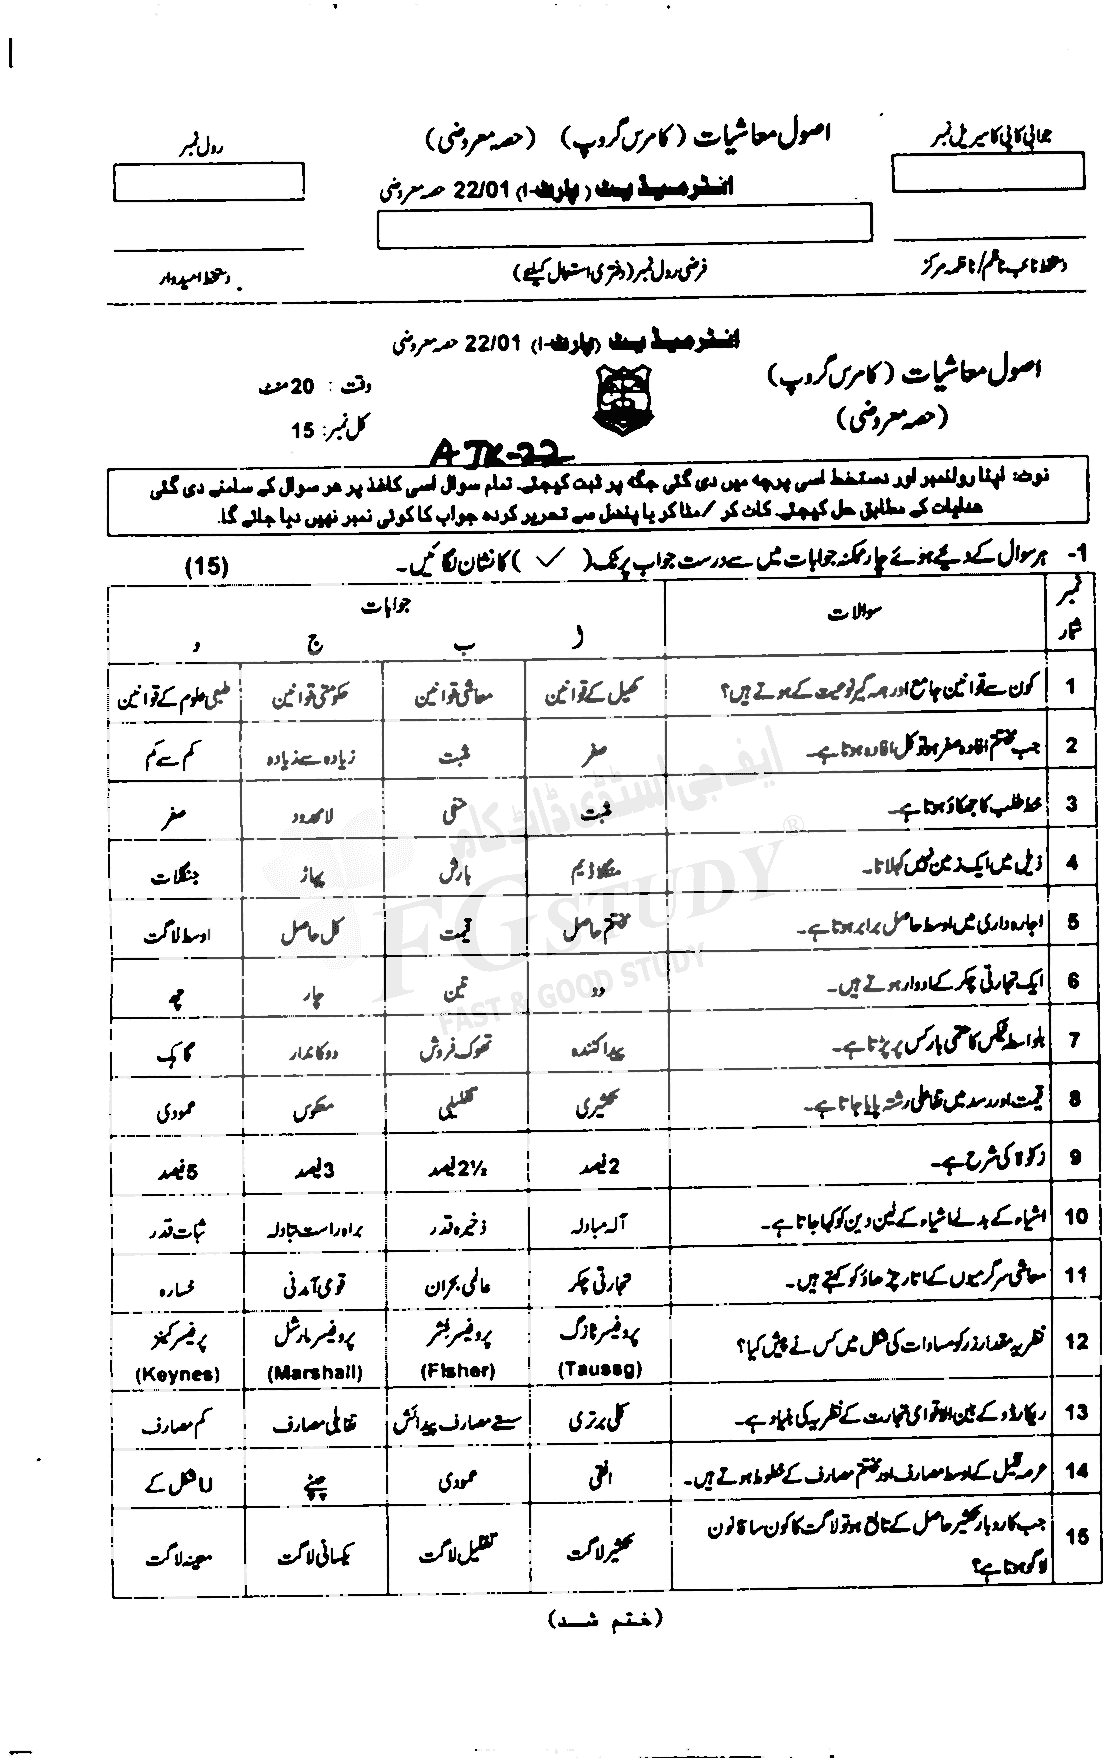 جوابی کاپی کا سیریل نمبر
اصول معاشیات (کامرس گروپ) (حصہ معروضی)
رول نمبر
انٹرمیڈیٹ (پارٹ-I) 22/01 حصہ معروضی
دستخط نائب ناظم/ناظمہ مرکز
فرضی رول نمبر (دفتری استعمال کیلئے)
دستخط امیدوار
انٹرمیڈیٹ (پارٹ-I) 22/01 حصہ معروضی
اصول معاشیات (کامرس گروپ)
وقت : 20 منٹ
(حصہ معروضی)
کل نمبر: 15
AJK-22
نوٹ: اپنا رولنمبر اور دستخط اسی پرچہ میں دی گئی جگہ پر ثبت کیجئے۔ تمام سوال اسی کاغذ پر ھر سوال کے سامنے دی گئی
ھدایات کے مطابق حل کیجئے۔ کاٹ کر /مٹا کر یا پنسل سے تحریر کردہ جواب کا کوئی نمبر نہیں دیا جائے گا۔
1- ہر سوال کے دیے ہوئے چار ممکنہ جوابات میں سے درست جواب پر ٹک ( ✓ ) کا نشان لگائیں۔ (15)
نمبر شمار سوالات جوابات
ا ب ج د
1 کون سے قوانین جامع اور ہمہ گیر نوعیت کے ہوتے ہیں؟ کھیل کے قوانین معاشی قوانین حکومتی قوانین طبعی علوم کے قوانین
2 جب مختتم افادہ صفر ہو تو کل افادہ ہوتا ہے۔ صفر مثبت زیادہ سے زیادہ کم سے کم
3 خط طلب کا جھکاؤ ہوتا ہے۔ مثبت منفی لامحدود صفر
4 ذیل میں ایک زمین نہیں کہلاتا۔ منگلا ڈیم بارش پہاڑ جنگلات
5 اجارہ داری میں اوسط حاصل برابر ہوتا ہے۔ مختتم حاصل قیمت کل حاصل اوسط لاگت
6 ایک تجارتی چکر کے ادوار ہوتے ہیں۔ دو تین چار چھ
7 بلواسطہ ٹیکس کا حتمی بار کس پر پڑتا ہے۔ پیدا کنندہ تھوک فروش دوکاندار گاہک
8 قیمت اور رسد میں تفاعلی رشتہ پایا جاتا ہے۔ تکثیری تقلیلی معکوس عمودی
9 زکوٰۃ کی شرح ہے۔ 2 فیصد 2½ فیصد 3 فیصد 5 فیصد
10 اشیاء کے بدلے اشیاء کے لین دین کو کہا جاتا ہے۔ آلہ مبادلہ ذخیرہ قدر براہ راست تبادلہ ثبات قدر
11 معاشی سرگرمیوں کے اتار چڑھاؤ کو کہتے ہیں۔ تجارتی چکر عالمی بحران قومی آمدنی خسارہ
12 نظریہ مقدار زر کو مساوات کی شکل میں کس نے پیش کیا؟ پروفیسر ٹازگ (Taussg) پروفیسر فشر (Fisher) پروفیسر مارشل (Marshall) پرفیسر کینز (Keynes)
13 ریکارڈو کے بین الاقوامی تجارت کے نظریہ کی بنیاد ہے۔ کلی برتری سستے مصارف پیدائش تقابلی مصارف کم مصارف
14 عرصہ قلیل کے اوسط مصارف اور مختتم مصارف کے خطوط ہوتے ہیں۔ افقی عمودی چپٹے U شکل کے
15 جب کاروبار تکثیر حاصل کے تابع ہو تو لاگت کا کون سا قانون لاگو ہوتا ہے؟ تکثیر لاگت تقلیل لاگت یکسانی لاگت معینہ لاگت
(ختم شد)
ایف جی اسٹڈی ڈاٹ کام
FGSTUDY ®
FAST & GOOD STUDY